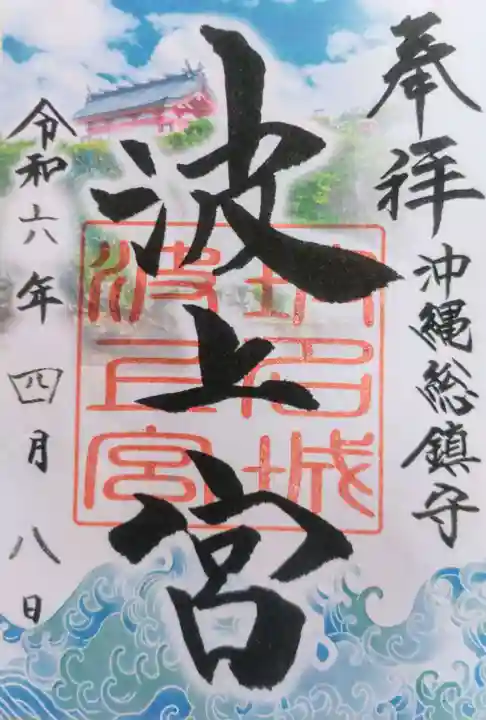 奉拝
沖縄総鎮守
波上宮
令和六年四月八日
波上宮